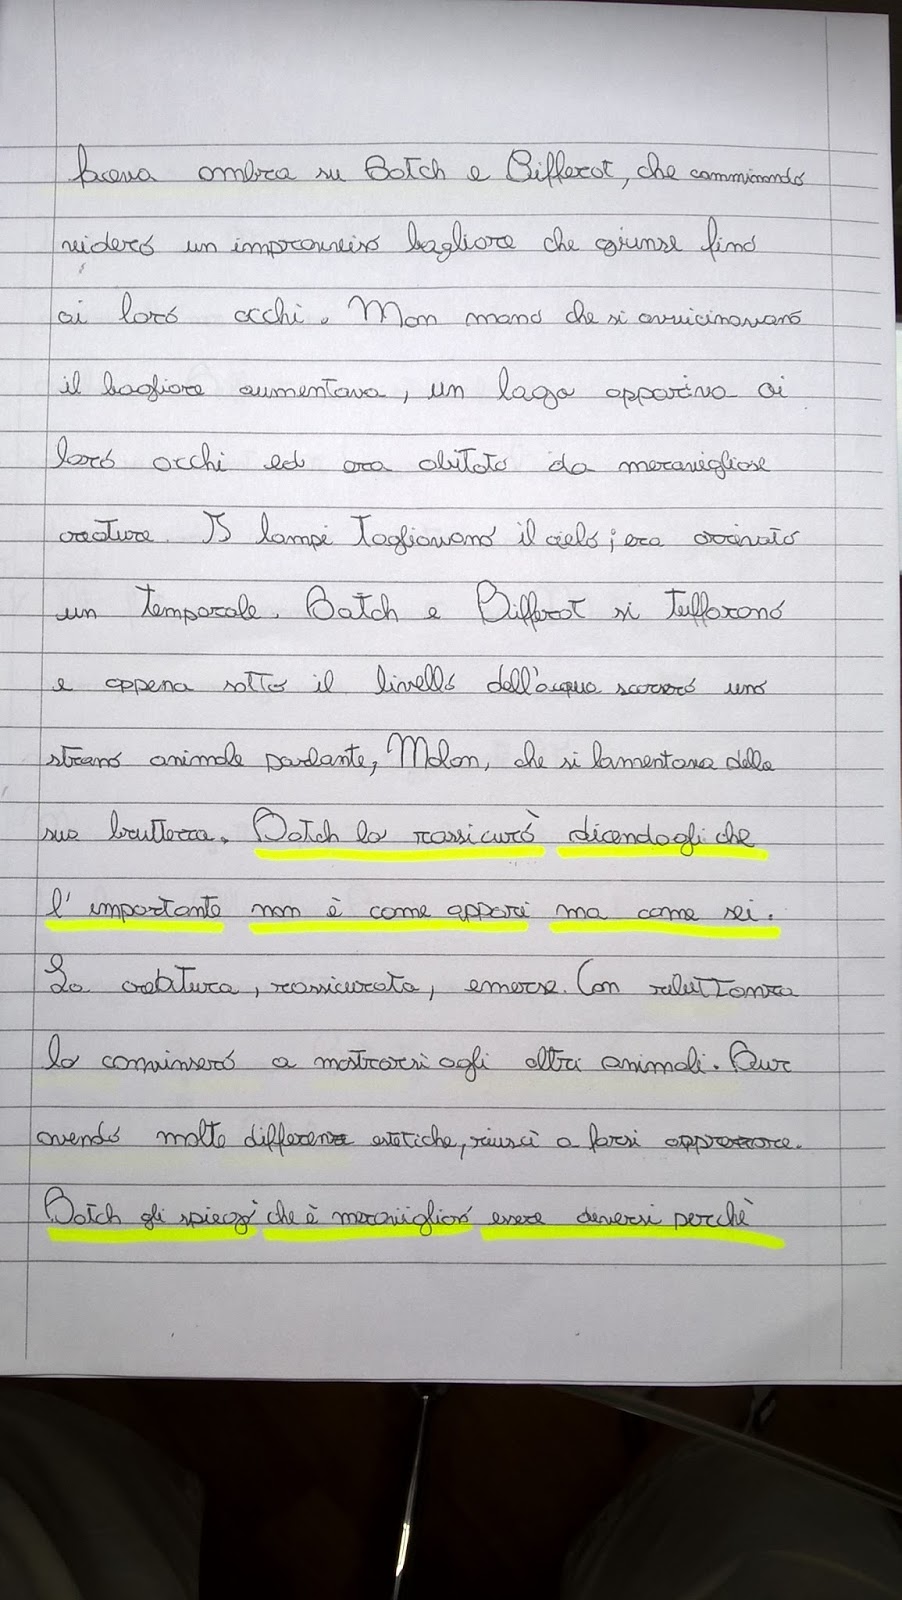 faceva ombra su Batch e Bifferot, che camminando
videro un improvviso bagliore che giunse fino
ai loro occhi. Man mano che si avvicinavano
il bagliore aumentava, un lago appariva ai
loro occhi ed era abitato da meravigliose
creature. I lampi tagliavano il cielo; era arrivato
un temporale. Batch e Bifferot si tuffarono
e appena sotto il livello dell'acqua scorsero uno
strano animale parlante, Molon, che si lamentava della
sua bruttezza. Batch lo rassicurò dicendogli che
l'importante non è come appari ma come sei.
La creatura, rassicurata, emerse. Con riluttanza
lo convinsero a mostrarsi agli altri animali. Pur
avendo molte differenze estetiche, riuscì a farsi apprezzare.
Batch gli spiegò che è meraviglioso essere diversi perchè